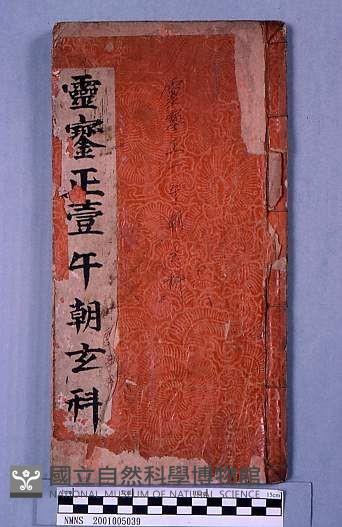 靈寶正壹午朝玄科
靈寶正一午朝玄科
國立自然科學博物館
NATIONAL MUSEUM OF NATURAL SCIENCE
5
10
15cm
NMNS 2001005039